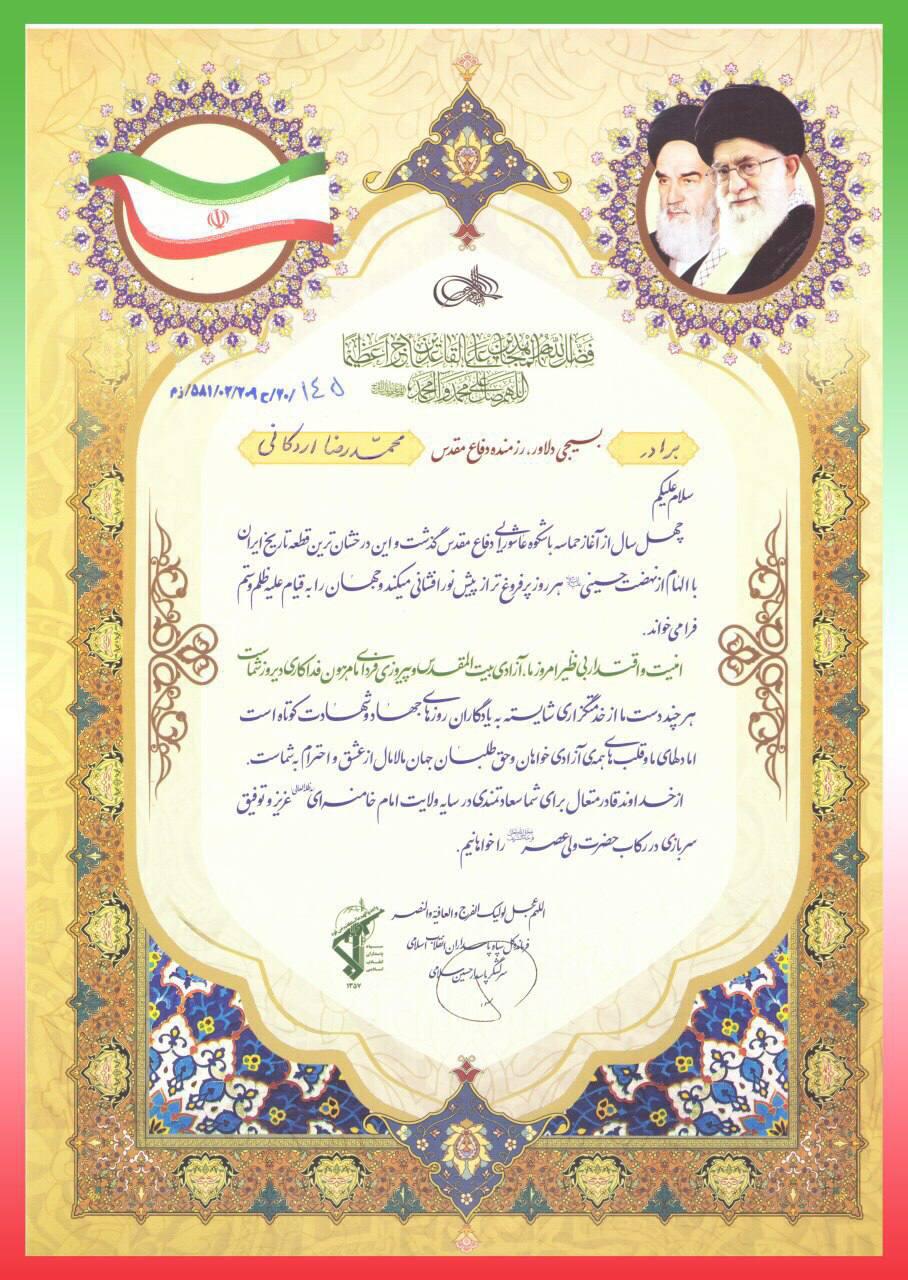 فضل الله المجاهدین علی القاعدین اجرا عظیما
اللهم صل علی محمد و آل محمد
۱۴۵ /۲۰/ح/۲۰۹/۰۲/۵۸۱/زم
برادر بسیجی دلاور، رزمنده دفاع مقدس محمدرضا اردکانی
سلام علیکم
چهل سال از آغاز حماسه باشکوه عاشورایی دفاع مقدس گذشت و این درخشان ترین قطعه تاریخ ایران
با الهام از نهضت حسینی هر روز پرفروغ تر از پیش نورافشانی میکند و جهان را به قیام علیه ظلم و ستم
فرا می خواند.
امنیت و اقتدار بی نظیر امروز ما، آزادی بیت المقدس و پیروزی فردای ما مرهون فداکاری دیروز شماست
هر چند دست ما از خدمتگزاری شایسته به یادگاران روزهای جهاد و شهادت کوتاه است
اما دلهای ما و قلب های همه‌ی آزادی خواهان و حق طلبان جهان مالامال از عشق و احترام به شماست.
از خداوند قادر متعال برای شما سعادتمندی در سایه ولایت امام خامنه ای مدظله‌العالی عزیز و توفیق
سربازی در رکاب حضرت ولی عصر را خواهانیم.
اللهم عجل لولیک الفرج و العافیة و النصر
فرمانده کل سپاه پاسداران انقلاب اسلامی
سرلشگر پاسدار حسین سلامی
سپاه
پاسداران
انقلاب
اسلامی
۱۳۵۷